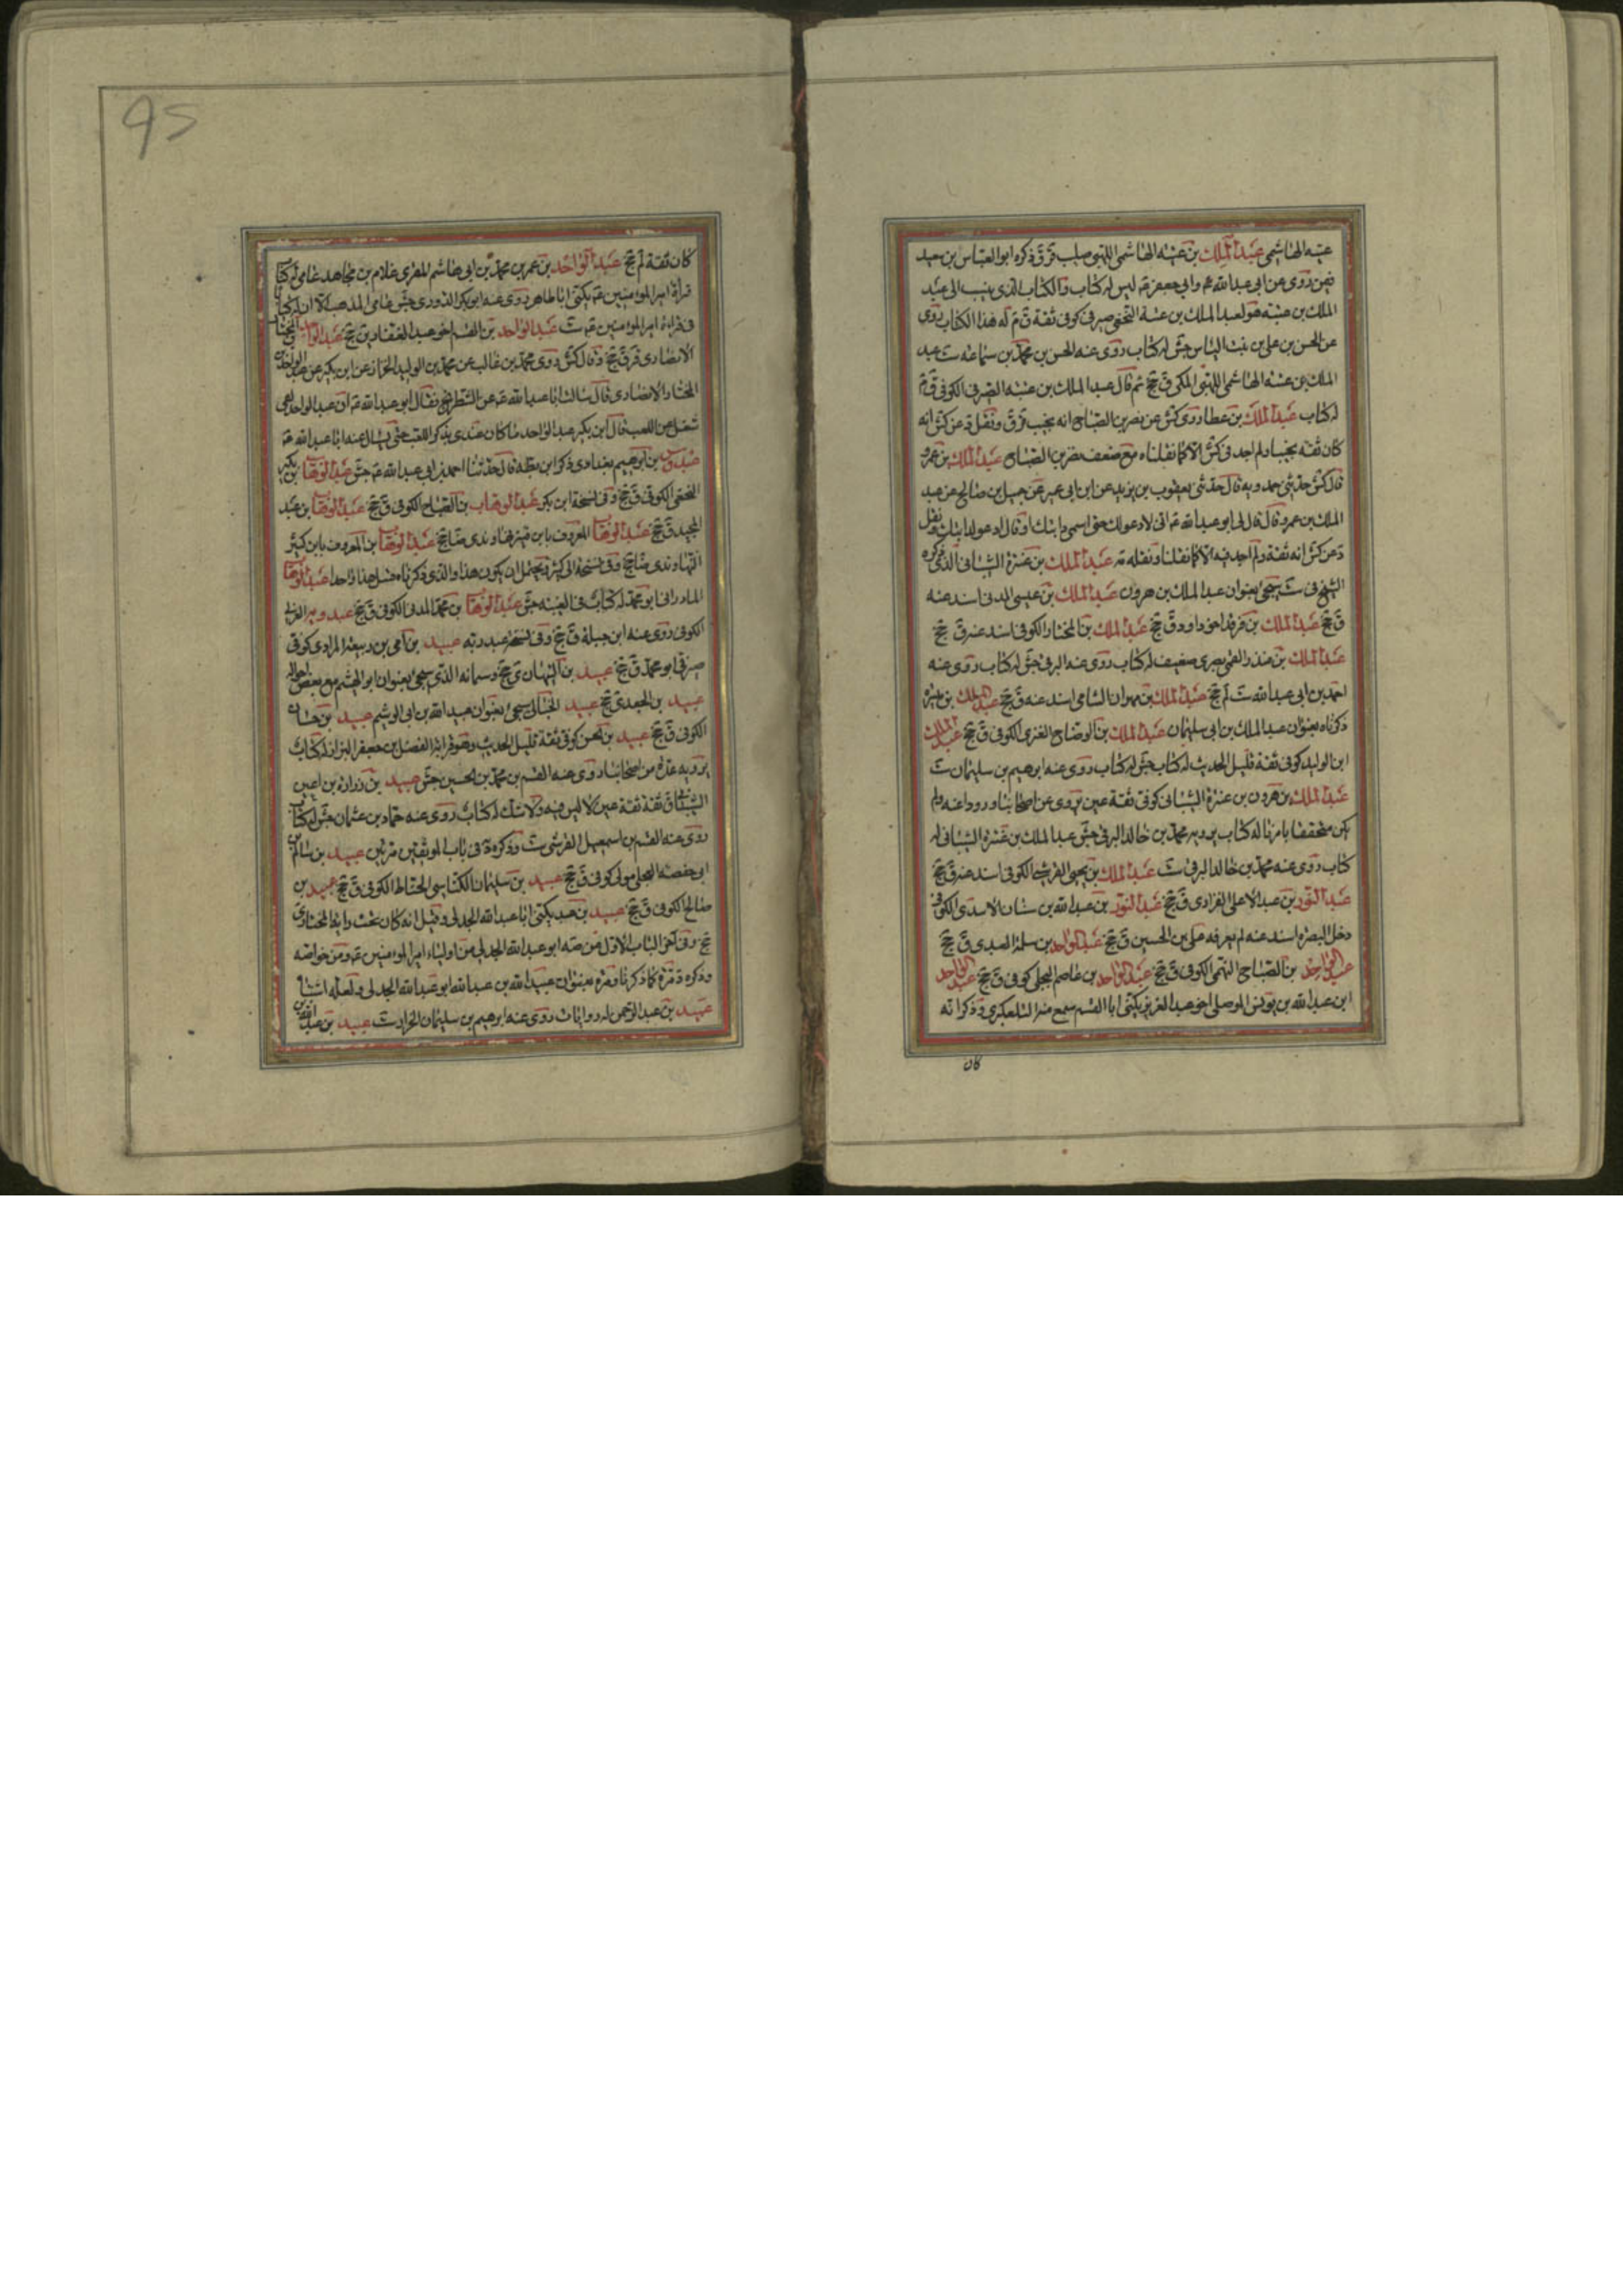 عتبه الهاشمى عبد الملك بن عتبه الهاشمى اللهبى صليب ق ذكره ابو العباس بن سعيد
فيمن روى عن ابى عبد الله ع وابى جعفر ع ليس له كتاب والكتاب الذى ينسب الى عبد
الملك بن عتبه هو لعبد الملك بن عتبة النخعى صيرفى كوفى ثقة له هذا الكتاب روى
عن الحسن بن على بن بنت الياس جش له كتاب روى عنه الحسن بن محمد بن سماعه ست عبد
الملك بن عتبه الهاشمى اللهبى المكى ق جخ ثم قال عبد الملك بن عتبه الصيرفى الكوفى
له كتاب عبد الملك بن عطا روى كش عن نصر بن الصباح انه نجيب ونقل عن كش انه
كان ثقه نجيبا ولم اجد فى كش الا كما نقلناه مع ضعف نصر بن الصباح عبد الملك بن عمرو
قال كش حدثنى حمدويه قال حدثنى يعقوب بن يزيد عن ابن ابى عمير عن جميل بن صالح عن عبد
الملك بن عمرو قال قال لى ابو عبد الله ع انى لادعو لك حتى اسمى دابتك او قال ادعو لدابتك ونقل
عن كش انه ثقة ولم اجد فيه الا كما نقلنا ونقله عبد الملك بن عنترة الشيبانى الذى ذكره
الشيخ فى ست سيجئ بعنوان عبد الملك بن هرون عبد الملك بن عيسى المدنى اسند عنه
ق جخ عبد الملك بن فرقد اخو داود ق جخ عبد الملك بن المختار الكوفى اسند عنه ق جخ
عبد الملك بن منذر القمى بصرى ضعيف له كتاب روى عنه البرقى جش له كتاب روى عنه
احمد بن ابى عبد الله ست لم جخ عبد الملك بن مهران الشامى اسند عنه ق جخ عبد الملك بن ميسره
ذكرناه بعنوان عبد الملك بن ابى سليمان عبد الملك بن الوضاح العنزى الكوفى ق جخ عبد الملك
ابن الوليد كوفى ثقة قليل الحديث له كتاب جش له كتاب روى عنه ابرهيم بن سليمان ست
عبد الملك بن هرون بن عنترة الشيبانى كوفى ثقة عين روى عن اصحابنا ورووا عنه ولم
يكن متحققا بامرنا له كتاب يرويه محمد بن خالد البرقى جش عبد الملك بن عنترة الشيبانى له
كتاب روى عنه محمد بن خالد البرقى ست عبد الملك بن يحيى القرشى الكوفى اسند عنه ق جخ
عبد النور بن عبد الاعلى الفزارى ق جخ عبد النور بن عبد الله بن سنان الاسدى الكوفى
دخل البصره اسند عنه لم يعرفه على بن الحسين ق جخ عبد الواحد بن سلمة العبدى ق جخ
عبد الواحد بن الصباح التيمى الكوفى ق جخ عبد الواحد بن عاصم البجلى كوفى ق جخ عبد الواحد
ابن عبد الله بن يونس الموصلى اخو عبد العزيز يكنى ابا القسم سمع منه التلعكبرى وذكر انه
كان
95
كان ثقة لم جخ عبد الواحد بن عمر بن محمد بن ابى هاشم المقرى غلام بن مجاهد عامى له كتاب
قرأة امير المومنين ع يكنى ابا طاهر روى عنه ابو بكر الدورى جش عامى المذهب الا ان له كتاب
فى قراءة امير المومنين ع ست عبد الواحد بن القسم اخو عبد الغفار ين جخ عبد الواحد بن المختار
الانصارى قر ق جخ وقال كش روى محمد بن غالب عن محمد بن الوليد الخزاز عن ابن بكير عن عبد الواحد بن
المختار الانصارى قال سالت ابا عبد الله ع عن الشطرنج فقال ابو عبد الله ع ان عبد الواحد لفى
شغل عن اللعب قال ابن بكير عبد الواحد ما كان عندى يذكر اللعب حتى يسال عنه ابا عبد الله ع
عبدوس بن ابرهيم بغدادى ذكر ابن بطة قال حدثنا احمد بن ابى عبد الله ع جش عبد الوهاب بن بكير
النخعى الكوفى ق جخ وفى نسخة ابن بكر عبد الوهاب بن الصباح الكوفى ق جخ عبد الوهاب بن عبد
المجيد ق جخ عبد الوهاب المعروف بابن قنبر نهاوندى ضا جخ عبد الوهاب بن المعروف بابن كثير
النهاوندى ضا جخ وفى نسخة الى كثير ويحتمل ان يكون هذا والذى ذكرناه قبل هذا واحدا عبد الوهاب
المادرانى ابو محمد له كتاب فى الغيبه جش عبد الوهاب بن محمد المدنى الكوفى ق جخ عبدويه
الكوفى روى عنه ابن جبلة ق جخ وفى نسخه عبد ربه عبيد بن امى بن ربيعة المرادى كوفى
صيرفى ابو محمد ق جخ عبيد بن التيهان ى جخ وسياته الذى سيجئ بعنوان ابو الهيثم مع بعض احواله
عبيد بن الجعدى جخ عبيد سيجئ بعنوان عبيد الله بن ابى الوشيم عبيد بن حسان
الكوفى ق جخ عبيد بن الحسن كوفى ثقة قليل الحديث وهو قرابة الفضل بن جعفر البزاز له كتاب
يرويه عدة من اصحابنا روى عنه القسم بن محمد بن الحسين جش عبيد بن زرارة بن اعين
الشيبانى ق ثقة ثقة عين لا لبس فيه ولا شك له كتاب روى عنه حماد بن عثمان جش له كتاب
روى عنه القسم بن اسمعيل القرشى ست وذكره فى باب الموثقين مرتين عبيد بن سالم بن
ابى حفصه العجلى مولى كوفى ق جخ عبيد بن سليمان الكناسى الحناط الكوفى ق جخ عبيد بن
صالح الكوفى ق جخ عبيد بن عبد يكنى ابا عبد الله الجدلى وقيل انه كان تحت راية المختار ى
جخ وفى آخر الباب الاول من صه ابو عبد الله الجدلى من اولياء امير المومنين ع ومن خواصه
وذكره مرة كما ذكرنا ومرة بعنوان عبيد الله بن عبد الله ابو عبد الله الجدلى ولعله اشتباه
عبيد بن عبد الرحمن له روايات روى عنه ابرهيم بن سليمان الخزاز ست عبيد بن عبد الله بن